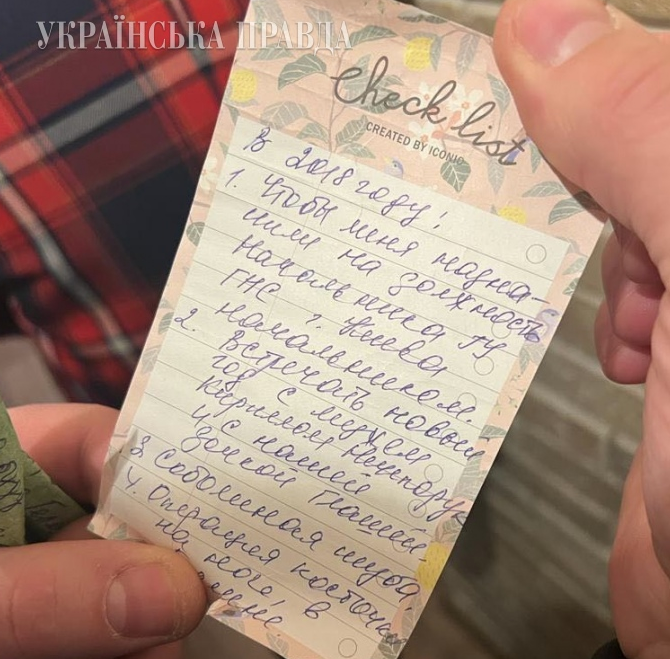 УКРАЇНСЬКА ПРАВДА
Check list
CREATED BY ICONIC
В 2018 году!
1. Чтобы меня назна-
чили на должность
начальника ГУ
ГНС г. Киева
начальником.
2. Встречать новый
год с мужем
Кириллом
и с нашей
дочкой
3. Соболиная шуба
4. Операция косточки
на ноге в